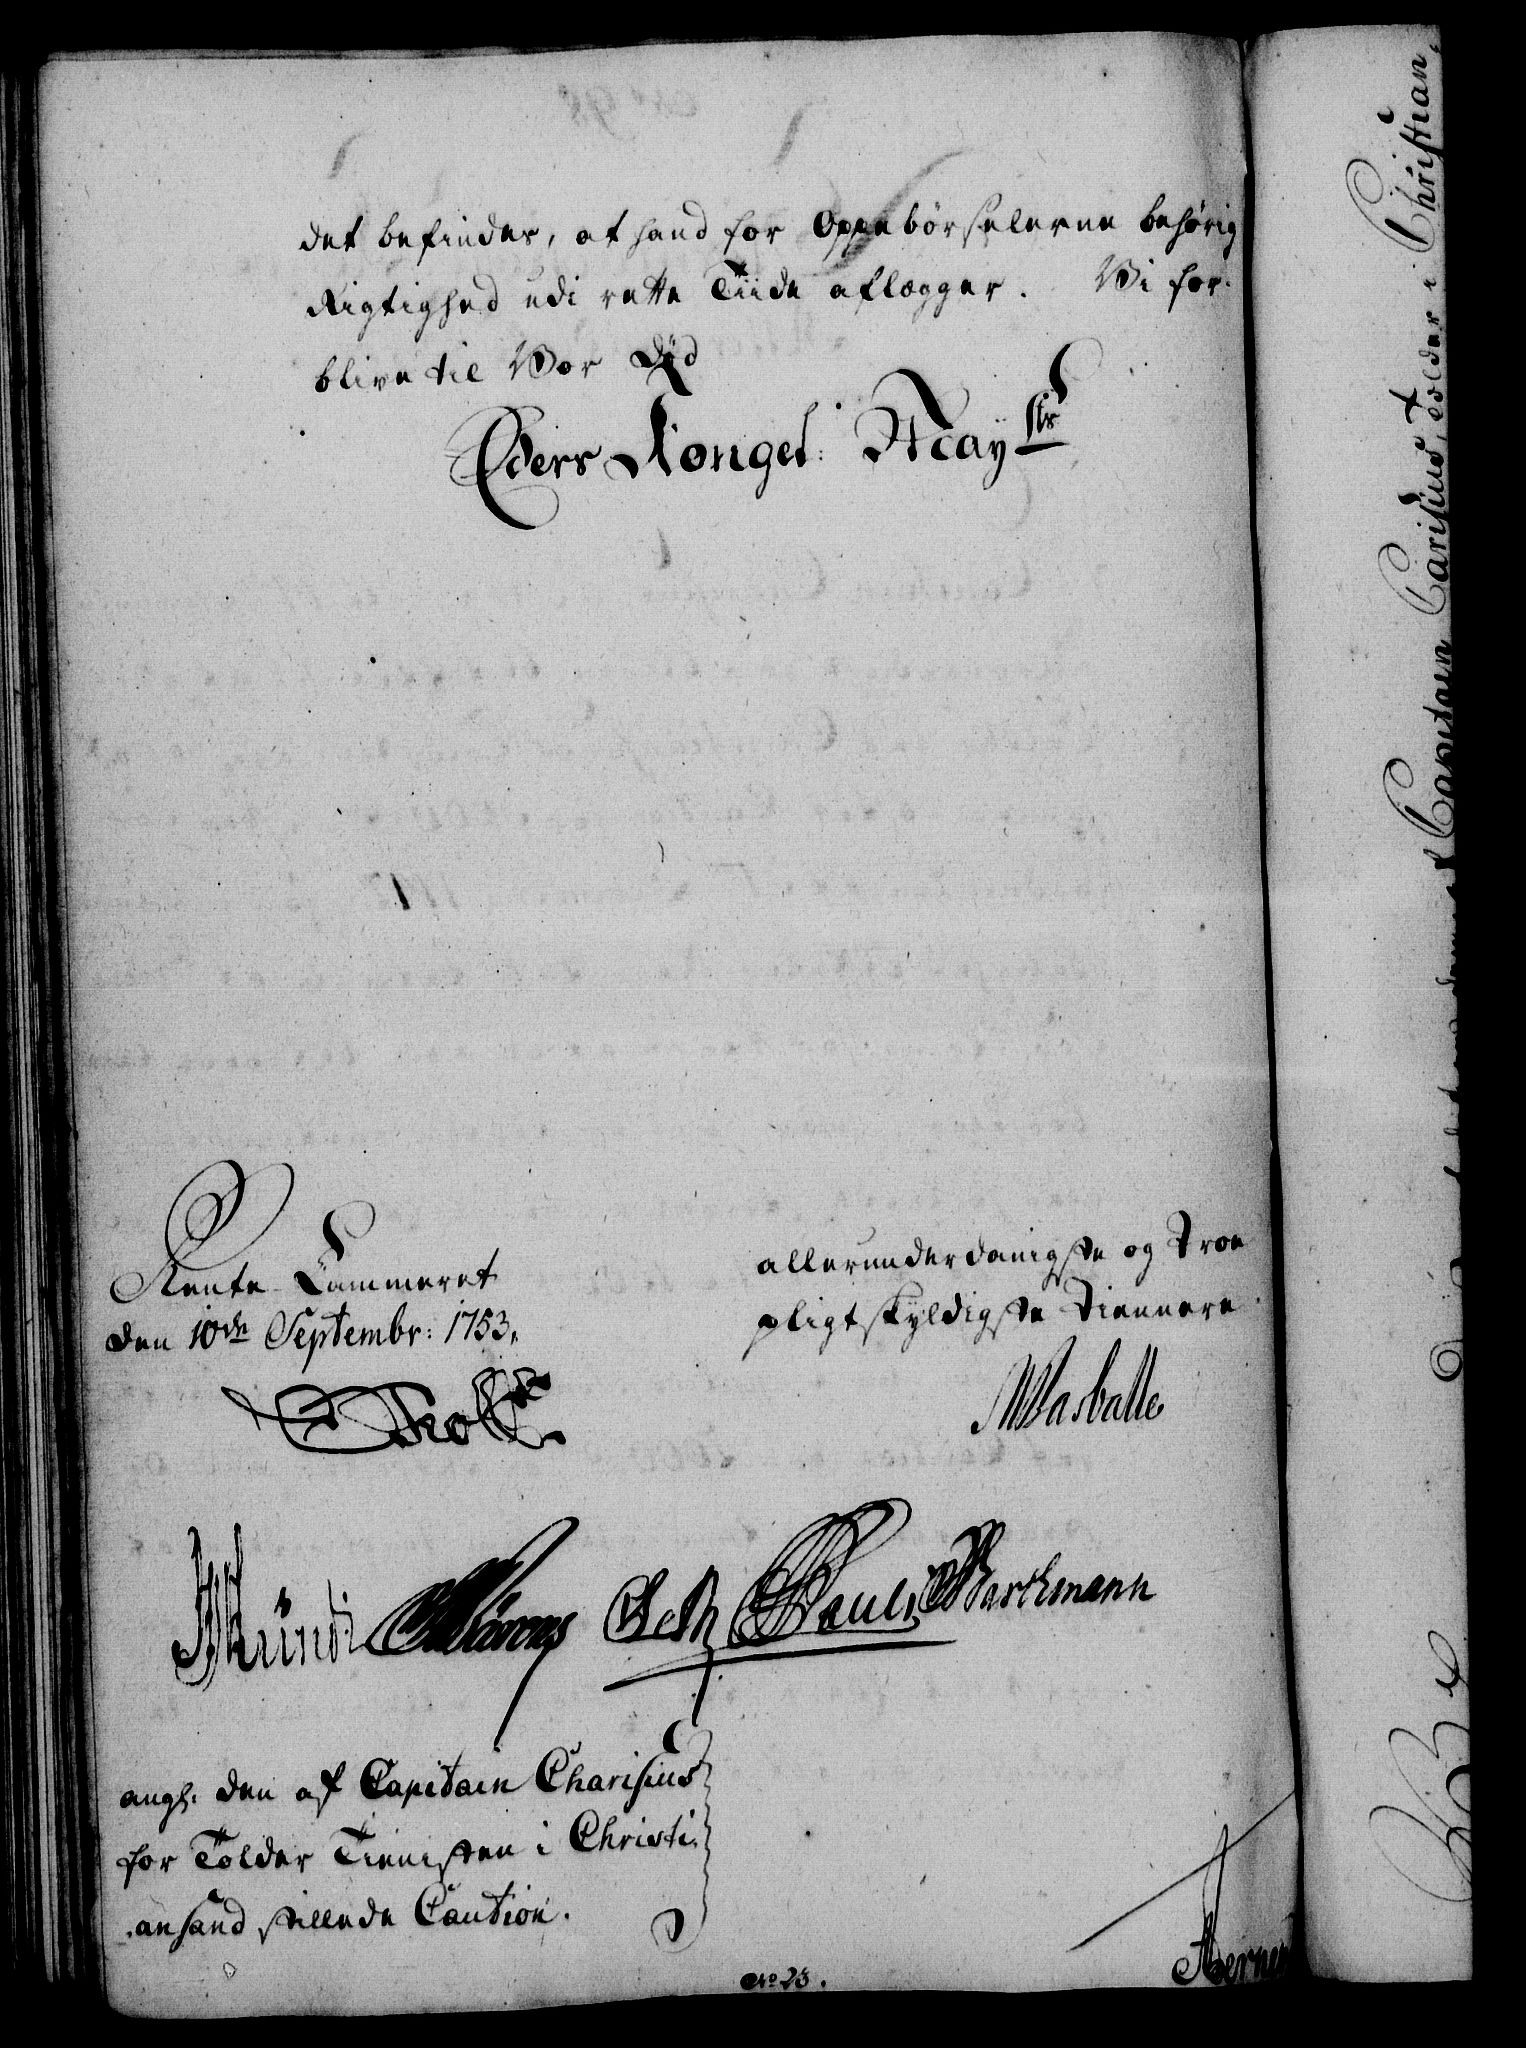 det befindes, at hand for Oppebörselerne behörig
Rigtighed udi rette Tiide aflægger. Vi for-
blive til Vor Död
Eders Kongel: May<sup>ts</sup>
Rente-Cammeret
den 10de Septembr: 1753.
allerunderdanigste og Troe
pligtskyldigste Tiennere
Holst
Wasballe
Mundt Beth Pauli Barchmann
angl. den af Capitain Charisius
for Tolder Tienisten i Christi-
ansand stillede Caution.
No 23.
Capitain Carisius, Tolder i Christian,